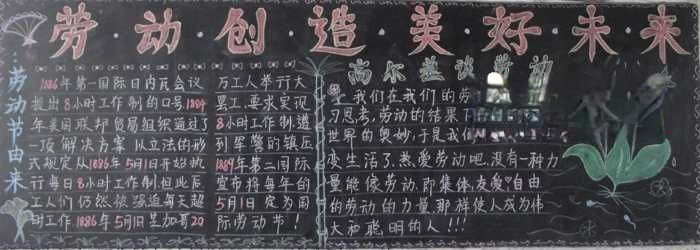 劳·动·创·造·美·好·未·来
劳动节由来
1886年第一国际日内瓦会议
提出8小时工作制的口号1884
年美国联邦贸易组织通过了
一项解决方案 以立法的形
式规定从1886年5月1日开始执
行每日8小时工作制但此后
工人们仍然被强迫每天超
时工作1886年5月1日芝加哥20
万工人举行大
罢工,要求实现
8小时工作制,遭
到军警的镇压
1889年第二国际
宣布将每年的
5月1日定为国
际劳动节!
高尔基谈劳动
我们在我们的劳
习思考,劳动的结果
世界的奥妙,于是我们
变生活了.热爱劳动吧.没有一种力
量能像劳动.即集体、友爱、自由
的劳动的力量.那样使人成为伟
大和聪明的人!!!